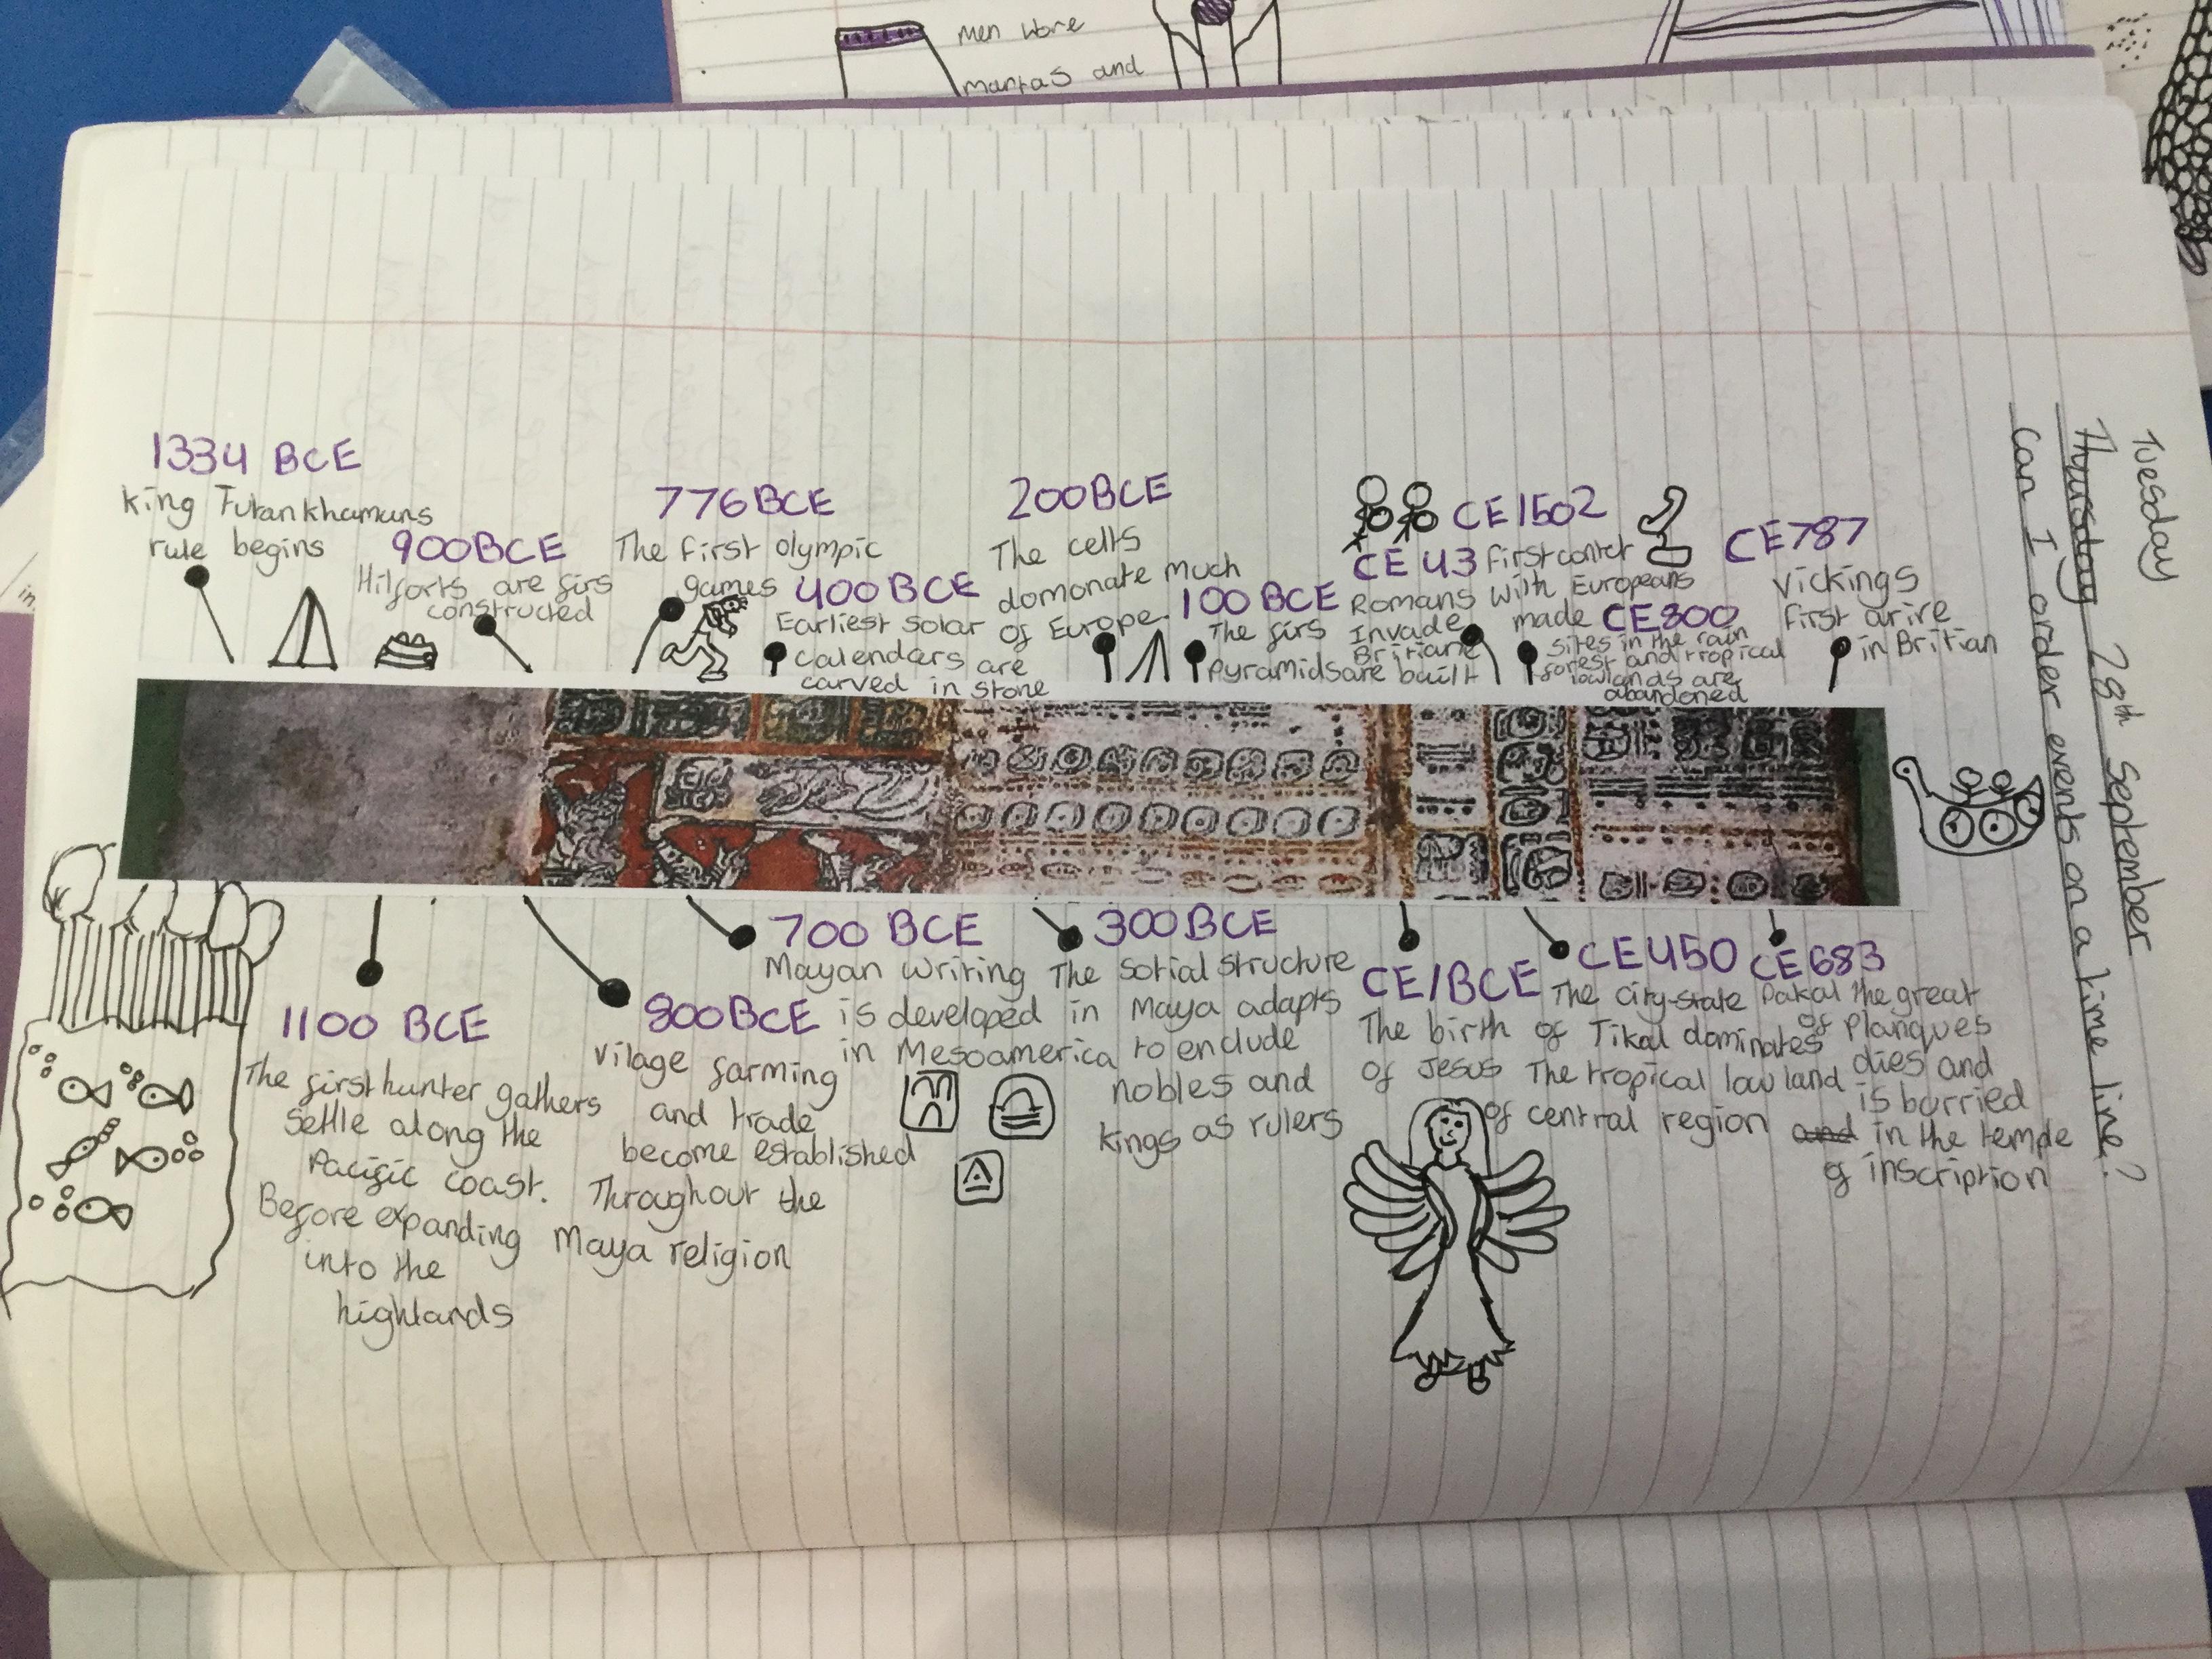 men wore
mantas and
in
Tuesday
Thursday 28th September
Can I order events on a time line?
1334 BCE
king Tutankhamuns
rule begins
900BCE
Hilforts are firs
constructed
776BCE
The first olympic
games
400BCE
Earliest solar
calendars are
carved in stone
200BCE
The celts
domonate much
of Europe.
100BCE
The firs
pyramids are built
CE 43
Romans
Invade
CE1502
first contct
with Europeans
made
CE800
sites in the rain
forest and tropical
lowlands are
abandoned
CE787
Vickings
first arire
in Britian
1100 BCE
The first hunter gathers
settle along the
Pacific coast.
Before expanding
into the
highlands
800BCE
Vilage farming
and trade
become established
Throughout the
Maya religion
700 BCE
Mayan writing
is developed
in Mesoamerica
300BCE
The sotial structure
in Maya adapts
to enclude
nobles and
kings as rulers
CE/BCE
The birth
of Jesus
CE450
The city-state
of Tikal dominates
The tropical low land
of central region
CE683
Pakal the great
of Planques
dies and
is burried
and in the tempe
of inscription